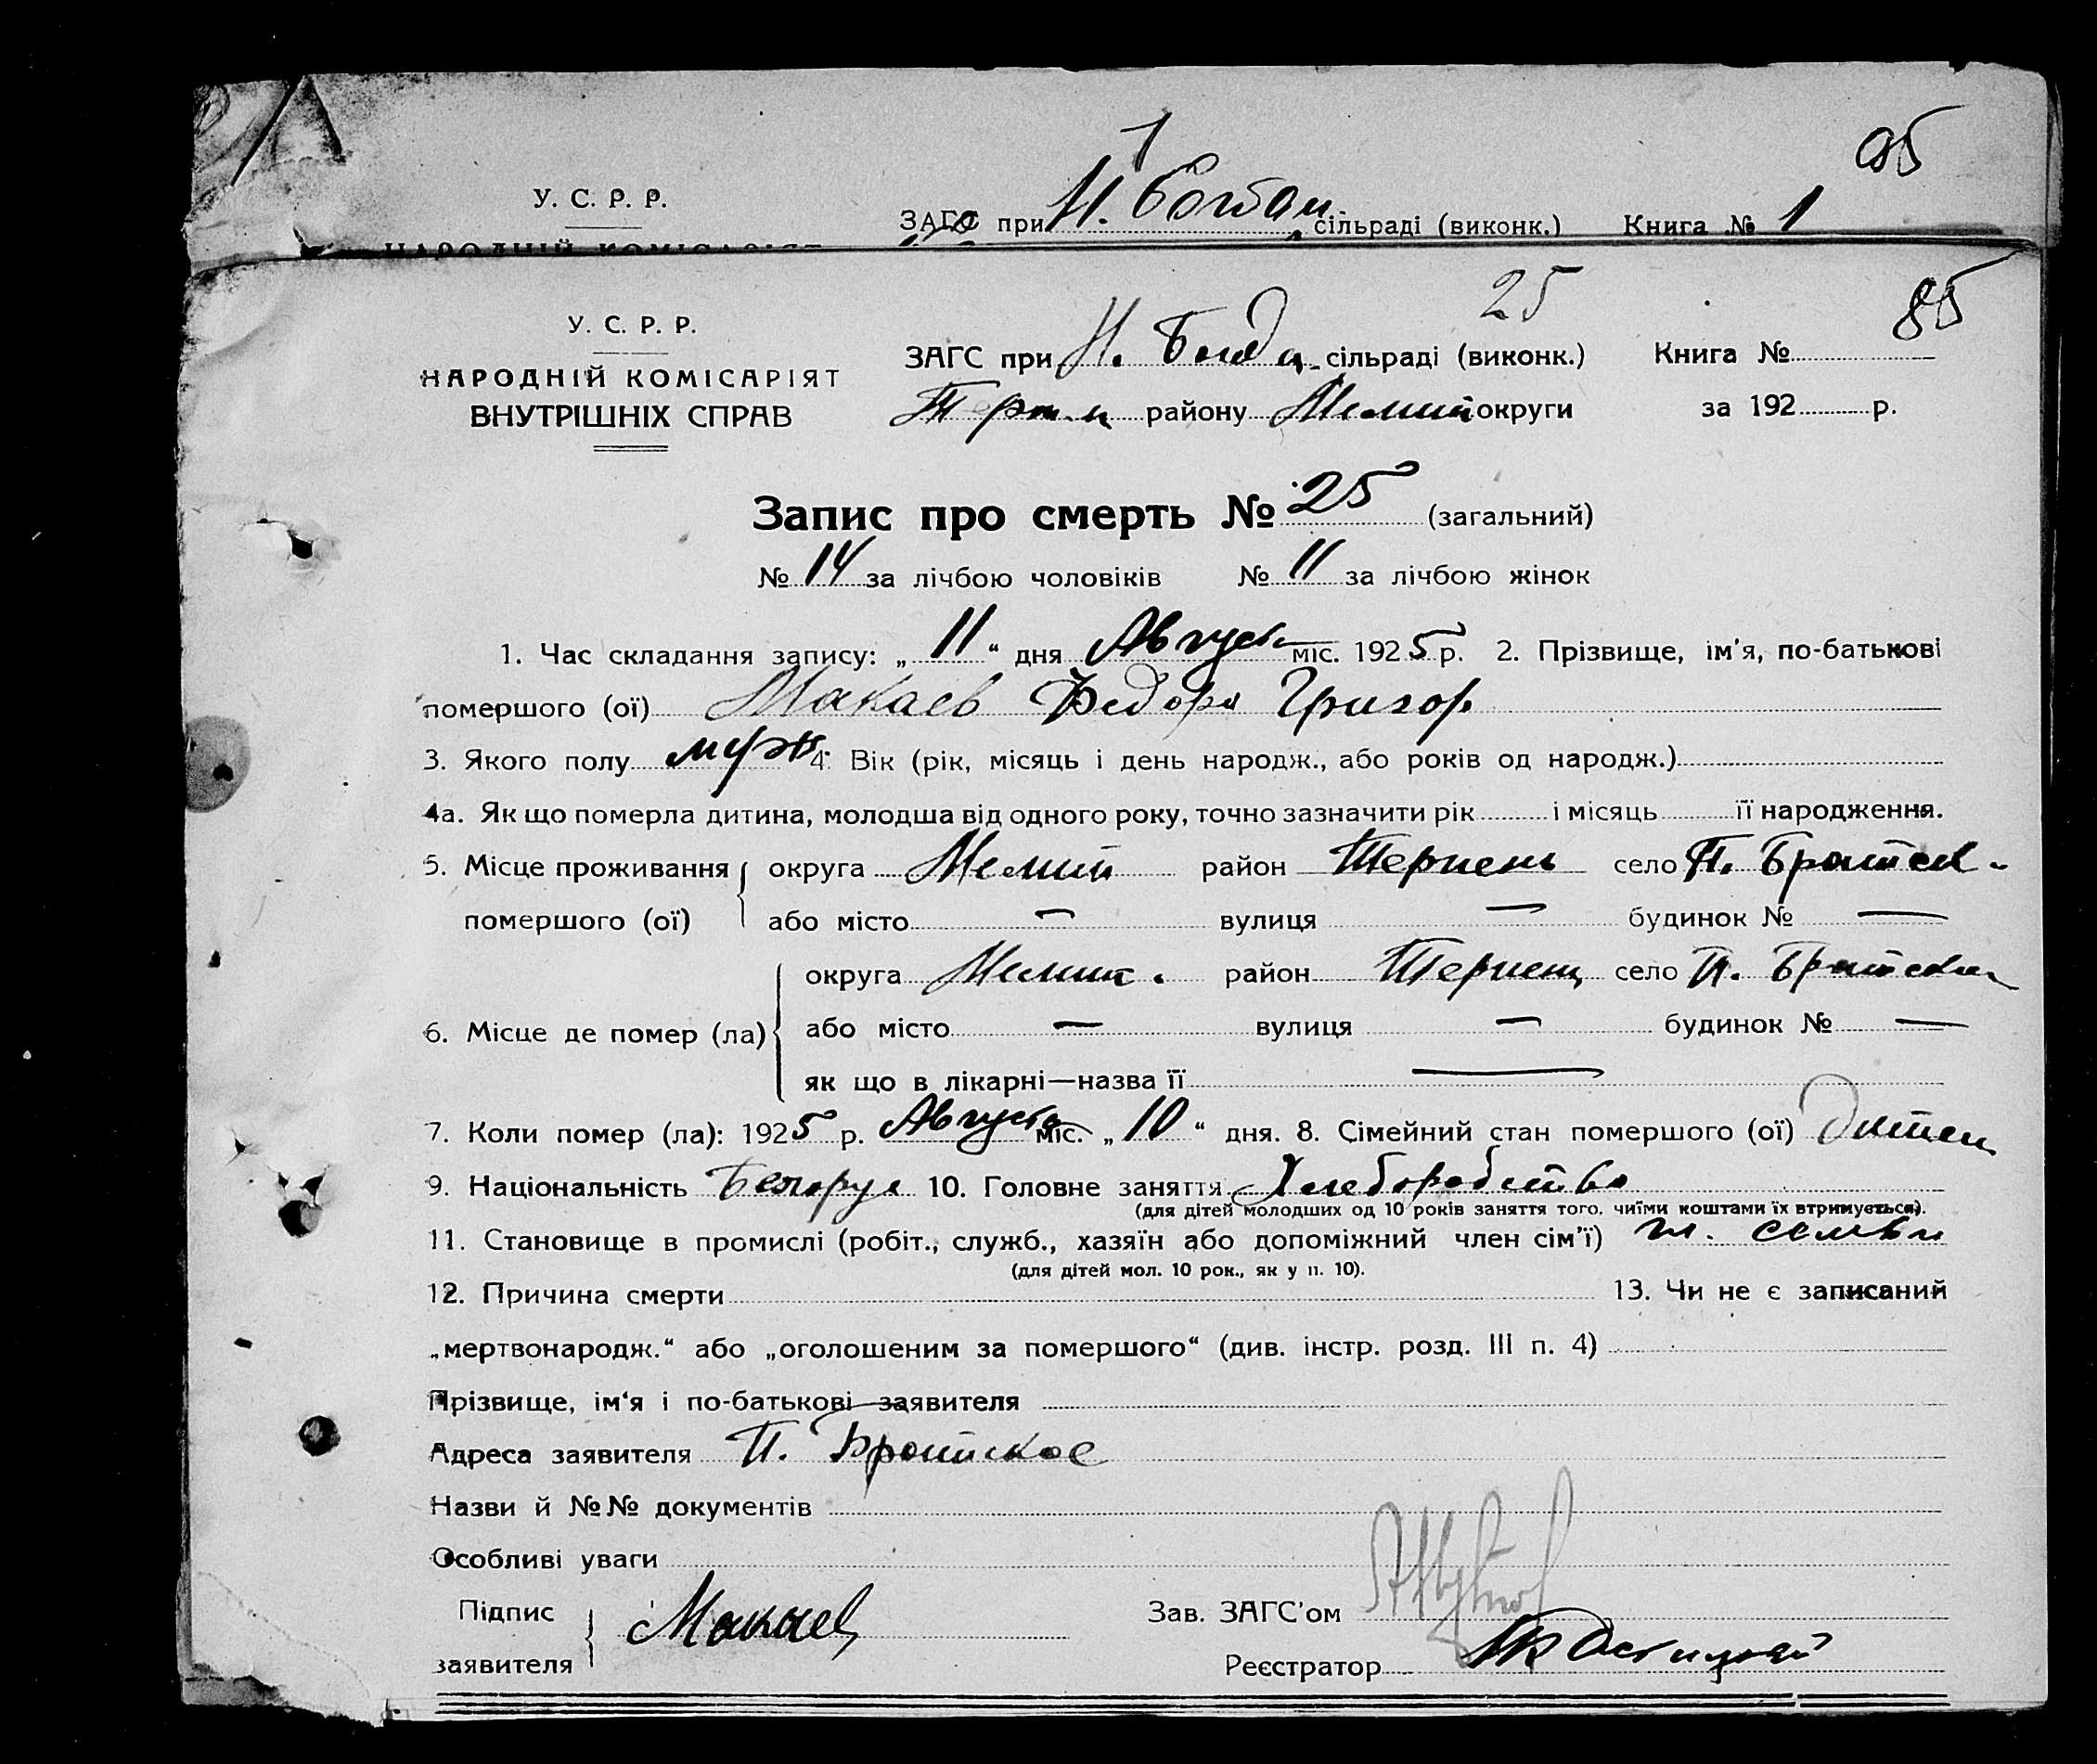 95
1
У. С. Р. Р.
ЗАГС при Н. Богдан. сільраді (виконк.) Книга № 1
НАРОДНІЙ КОМІСАРІЯТ
25
85
У. С. Р. Р.
ЗАГС при Н. Богда. сільраді (виконк.) Книга №
НАРОДНІЙ КОМІСАРІЯТ
району Мелит округи за 192 р.
ВНУТРІШНІХ СПРАВ
Запис про смерть № 25 (загальний)
№ 14 за лічбою чоловіків № 11 за лічбою жінок
1. Час складання запису: „ 11 “ дня Августа міс. 1925 р. 2. Прізвище, ім'я, по-батькові
помершого (ої) Макаев Федора Григор
3. Якого полу муж 4. Вік (рік, місяць і день народж., або років од народж.)
4а. Як що померла дитина, молодша від одного року, точно зазначити рік і місяць її народження.
5. Місце проживання округа Мелит район Терпень село П. Братск
помершого (ої) або місто — вулиця — будинок № —
округа Мелит. район Терпен село П. Братск
6. Місце де помер (ла) або місто — вулиця — будинок № —
як що в лікарні—назва її —
7. Коли помер (ла): 1925 р. Августа міс. „ 10 “ дня. 8. Сімейний стан помершого (ої)
9. Національність Белорус 10. Головне заняття Хлеборобство
(для дітей молодших од 10 років заняття того, чиїми коштами їх втримується).
11. Становище в промислі (робіт., служб., хазяїн або допоміжний член сім'ї) чл. семьи
(для дітей мол. 10 рок., як у п. 10).
12. Причина смерти 13. Чи не є записаний
„мертвонародж.“ або „оголошеним за помершого“ (див. інстр. розд. III п. 4)
Прізвище, ім'я і по-батькові заявителя
Адреса заявителя П. Братское
Назви й №№ документів
Особливі уваги
Підпис Макаев Зав. ЗАГС'ом
заявителя Реєстратор